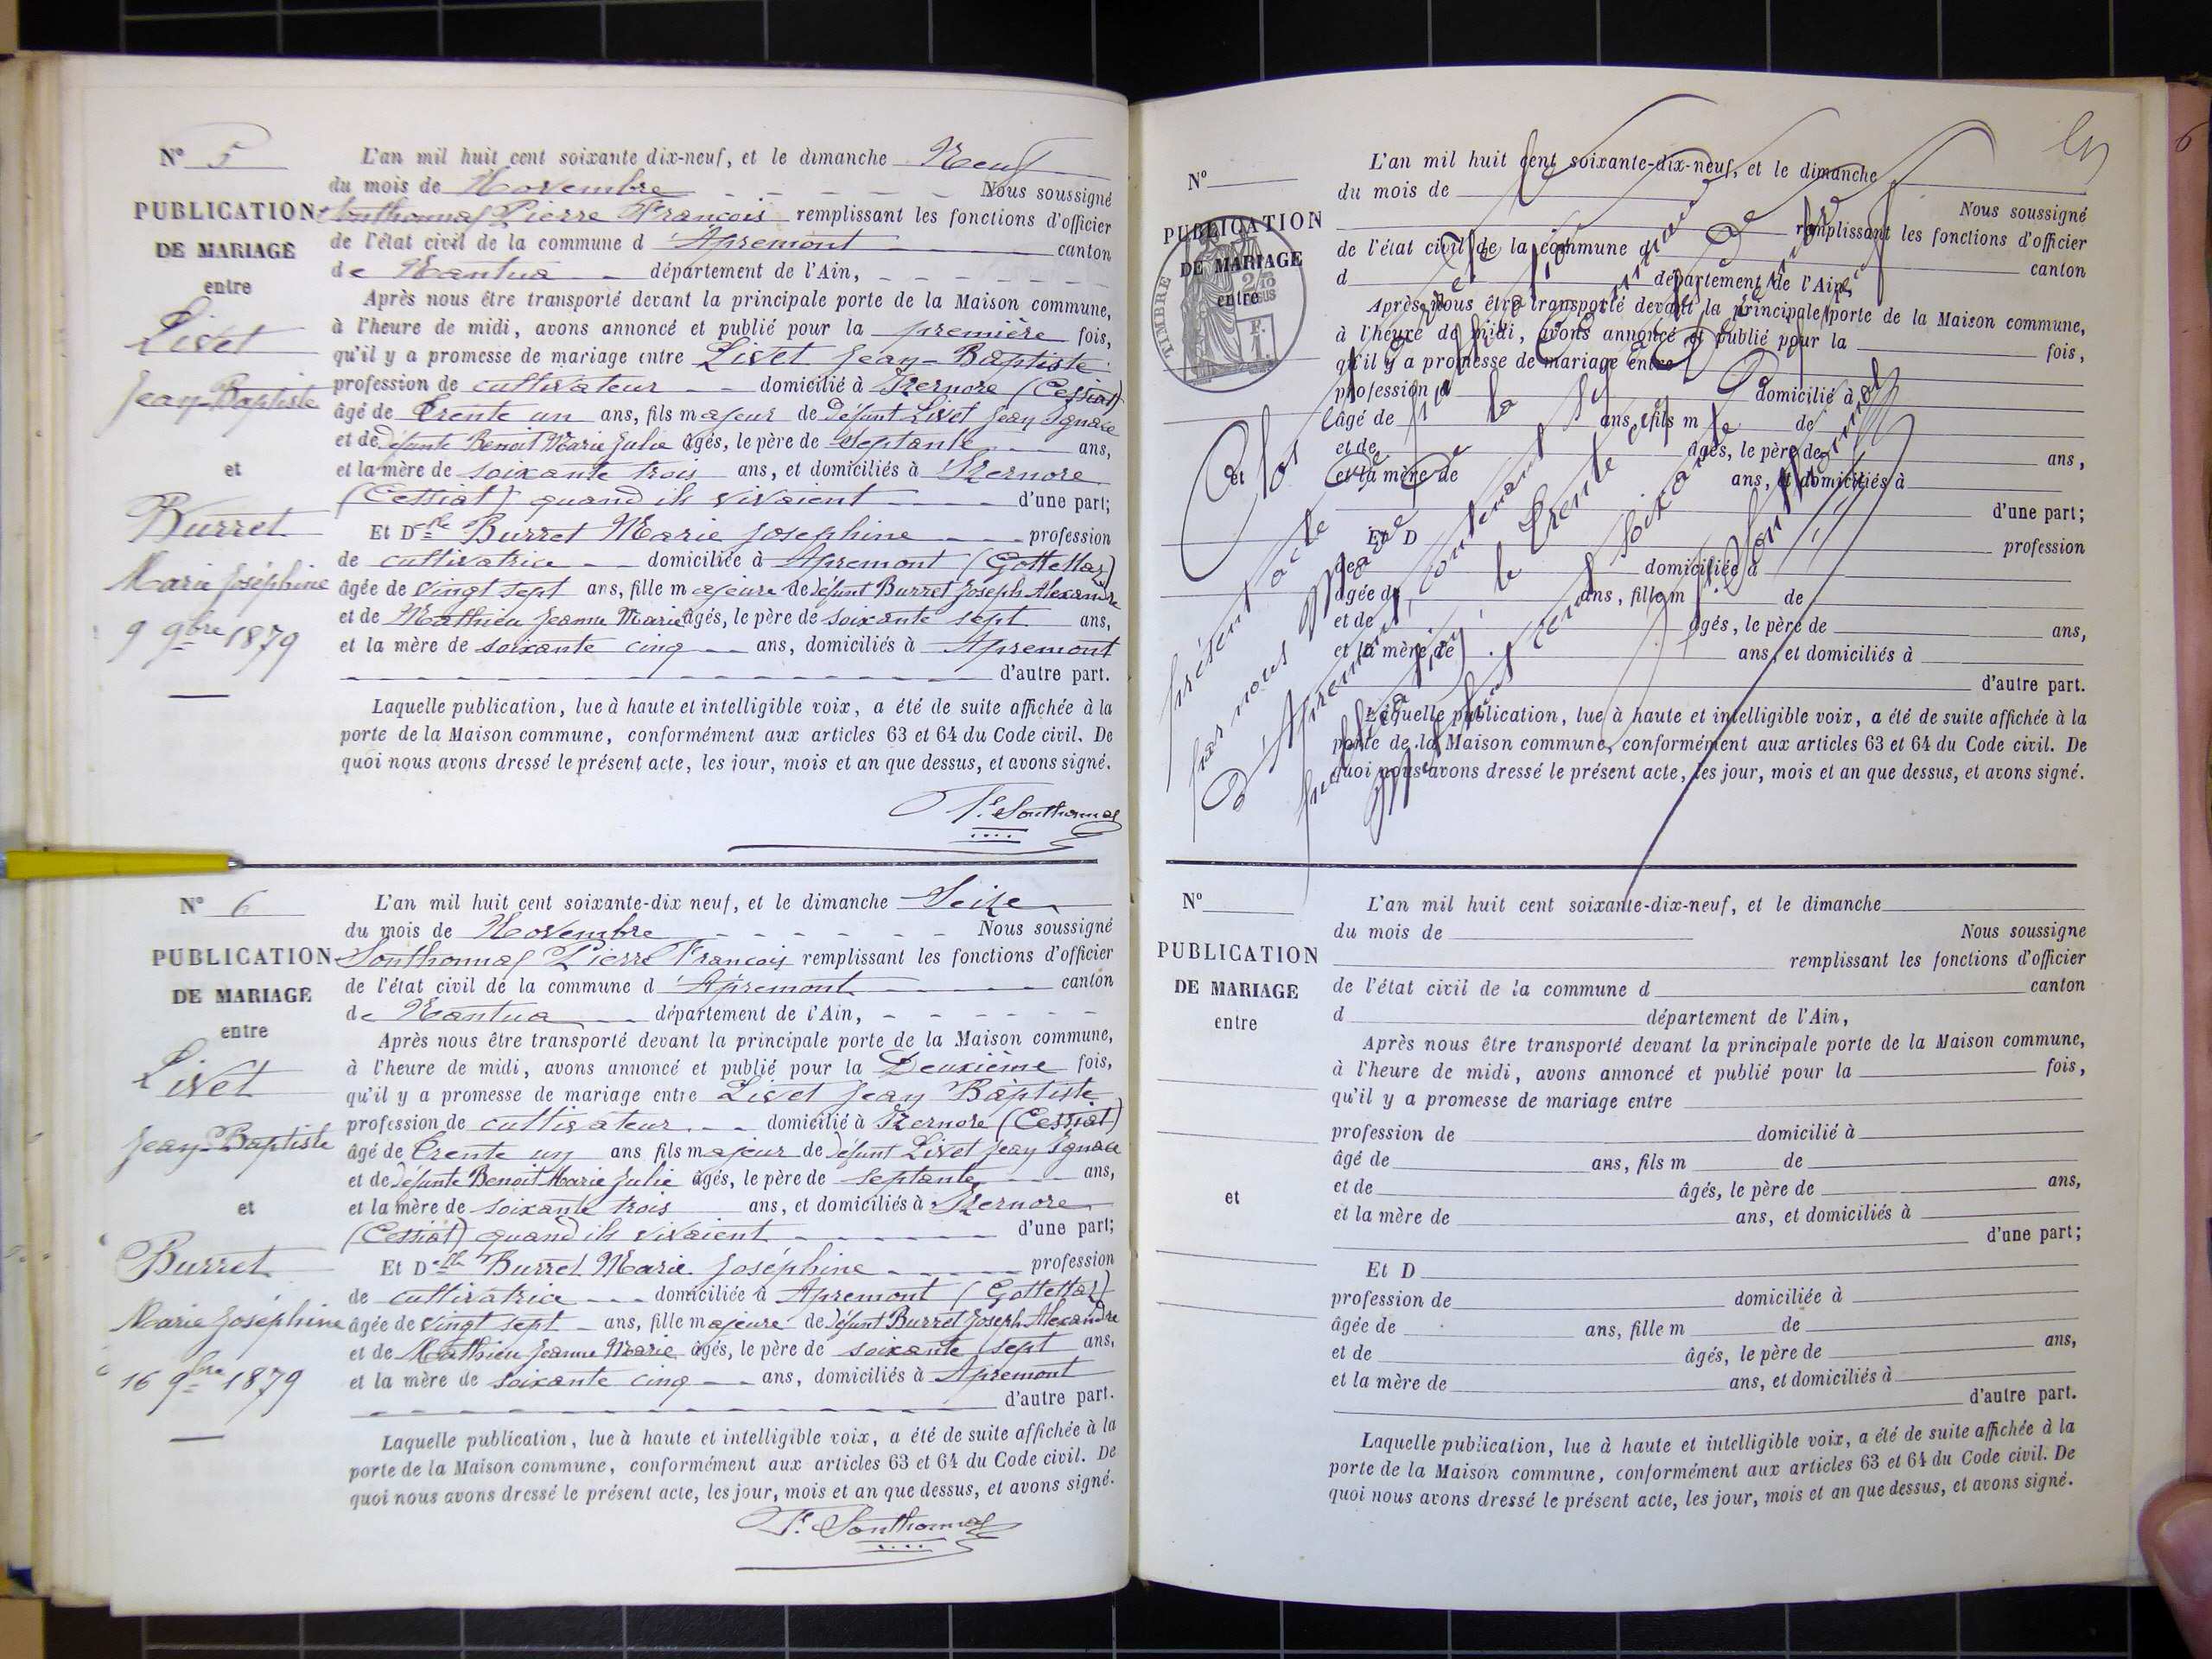 N° 5
PUBLICATION
DE MARIAGE
entre
Livet
Jean-Baptiste
et
Burret
Marie Joséphine
9 9bre 1879
L'an mil huit cent soixante dix-neuf, et le dimanche Neuf
du mois de Novembre Nous soussigné
Sonthonnax Pierre François remplissant les fonctions d'officier
de l'état civil de la commune d'Apremont canton
de Nantua département de l'Ain,
Après nous être transporté devant la principale porte de la Maison commune,
à l'heure de midi, avons annoncé et publié pour la première fois,
qu'il y a promesse de mariage entre Livet Jean-Baptiste
profession de cultivateur domicilié à Izernore (Cessiat)
âgé de Trente un ans, fils majeur de Défunt Livet Jean Ignace
et de Défunte Benoit Marie Julie âgés, le père de septante ans,
et la mère de soixante trois ans, et domiciliés à Izernore
(Cessiat) quand ils vivaient d'une part;
Et Dlle Burret Marie Josephine profession
de cultivatrice domiciliée à Apremont (Gottettaz)
âgée de vingt sept ans, fille majeure de Défunt Burret Joseph Alexandre
et de Mathieu Jeanne Marie âgés, le père de soixante sept ans,
et la mère de soixante cinq ans, domiciliés à Apremont
d'autre part.
Laquelle publication, lue à haute et intelligible voix, a été de suite affichée à la
porte de la Maison commune, conformément aux articles 63 et 64 du Code civil. De
quoi nous avons dressé le présent acte, les jour, mois et an que dessus, et avons signé.
F. Sonthonnax
N° 6
PUBLICATION
DE MARIAGE
entre
Livet
Jean-Baptiste
et
Burret
Marie Joséphine
16 9bre 1879
L'an mil huit cent soixante-dix neuf, et le dimanche Seize
du mois de Novembre Nous soussigné
Sonthonnax Pierre François remplissant les fonctions d'officier
de l'état civil de la commune d'Apremont canton
de Nantua département de l'Ain,
Après nous être transporté devant la principale porte de la Maison commune,
à l'heure de midi, avons annoncé et publié pour la Deuxième fois,
qu'il y a promesse de mariage entre Livet Jean Baptiste
profession de cultivateur domicilié à Izernore (Cessiat)
âgé de Trente un ans fils majeur de Défunt Livet Jean Ignace
et de Défunte Benoit Marie Julie âgés, le père de septante ans,
et la mère de soixante trois ans, et domiciliés à Izernore
(Cessiat) quand ils vivaient d'une part;
Et Dlle Burret Marie Joséphine profession
de cultivatrice domiciliée à Apremont (Gottettaz)
âgée de vingt sept ans, fille majeure de Défunt Burret Joseph Alexandre
et de Mathieu Jeanne Marie âgés, le père de soixante sept ans,
et la mère de soixante cinq ans, domiciliés à Apremont
d'autre part.
Laquelle publication, lue à haute et intelligible voix, a été de suite affichée à la
porte de la Maison commune, conformément aux articles 63 et 64 du Code civil. De
quoi nous avons dressé le présent acte, les jour, mois et an que dessus, et avons signé.
F. Sonthonnax
N°
PUBLICATION
DE MARIAGE
entre
et
TIMBRE
L'an mil huit cent soixante-dix-neuf, et le dimanche
du mois de Nous soussigné
remplissant les fonctions d'officier
de l'état civil de la commune d canton
d département de l'Ain,
Après nous être transporté devant la principale porte de la Maison commune,
à l'heure de midi, avons annoncé et publié pour la fois,
qu'il y a promesse de mariage entre
profession d domicilié à
âgé de ans, fils m de
et de âgés, le père de ans,
et la mère de ans, et domiciliés à
d'une part;
Et D profession
de domiciliée à
âgée de ans, fille m de
et de âgés, le père de ans,
et la mère de ans, et domiciliés à
d'autre part.
Laquelle publication, lue à haute et intelligible voix, a été de suite affichée à la
porte de la Maison commune, conformément aux articles 63 et 64 du Code civil. De
quoi nous avons dressé le présent acte, les jour, mois et an que dessus, et avons signé.
Clos le
présent acte
par nous
d'Apremont, contenant
le trente
cent soixante
N°
PUBLICATION
DE MARIAGE
entre
et
L'an mil huit cent soixante-dix-neuf, et le dimanche
du mois de Nous soussigne
remplissant les fonctions d'officier
de l'état civil de la commune d canton
d département de l'Ain,
Après nous être transporté devant la principale porte de la Maison commune,
à l'heure de midi, avons annoncé et publié pour la fois,
qu'il y a promesse de mariage entre
profession de domicilié à
âgé de ans, fils m de
et de âgés, le père de ans,
et la mère de ans, et domiciliés à
d'une part;
Et D
profession de domiciliée à
âgée de ans, fille m de
et de âgés, le père de ans,
et la mère de ans, et domiciliés à
d'autre part.
Laquelle publication, lue à haute et intelligible voix, a été de suite affichée à la
porte de la Maison commune, conformément aux articles 63 et 64 du Code civil. De
quoi nous avons dressé le présent acte, les jour, mois et an que dessus, et avons signé.